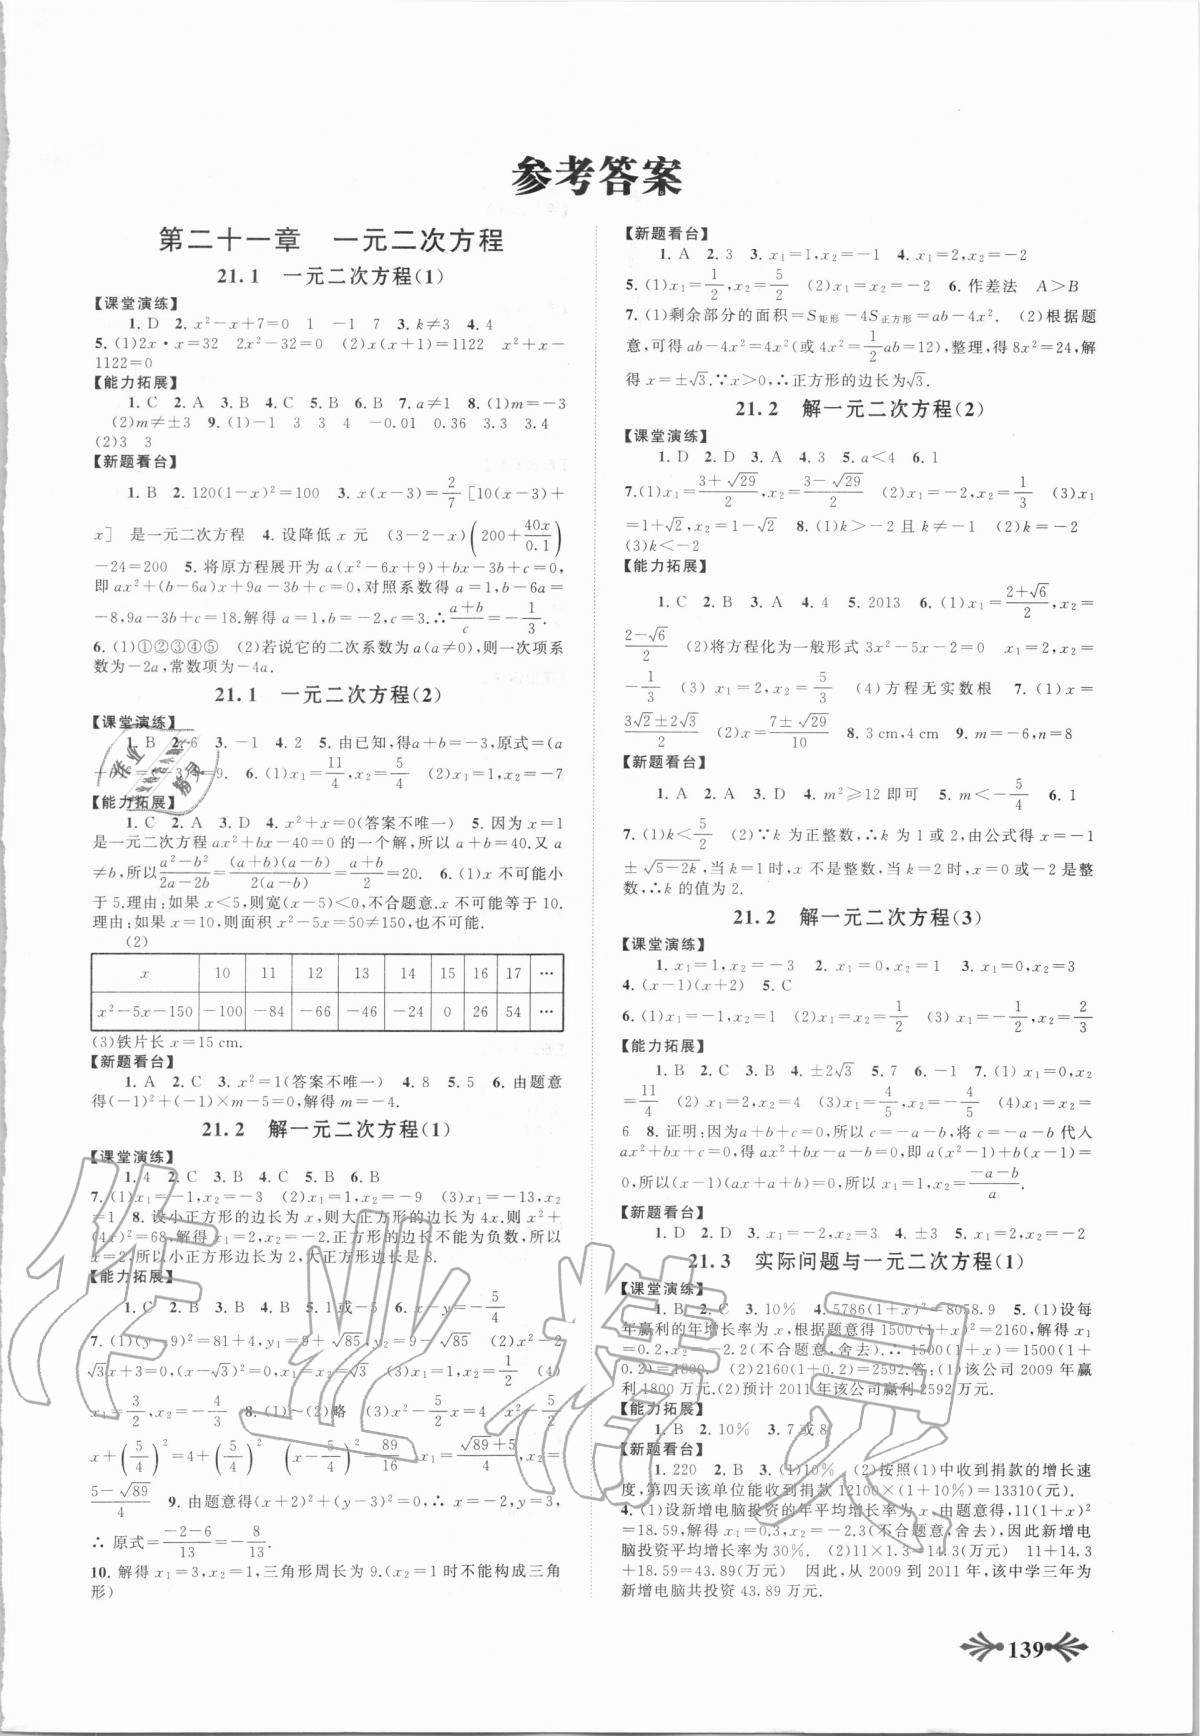 参考答案
第二十一章 一元二次方程
21.1 一元二次方程(1)
【课堂演练】
1. D 2. x²－x＋7＝0 1 －1 7 3. k≠3 4. 4
5. (1)2x·x＝32 2x²－32＝0 (2)x(x＋1)＝1122 x²＋x－
1122＝0
【能力拓展】
1. C 2. A 3. B 4. C 5. B 6. B 7. a≠1 8. (1)m＝－3
(2)m≠±3 9. (1)－1 3 3 4 －0.01 0.36 3.3 3.4
(2)3 3
【新题看台】
1. B 2. 120(1－x)²＝100 3. x(x－3)＝2/7[10(x－3)＋
x] 是一元二次方程 4. 设降低 x 元 (3－2－x)(200＋40x/0.1)
－24＝200 5. 将原方程展开为 a(x²－6x＋9)＋bx－3b＋c＝0,
即 ax²＋(b－6a)x＋9a－3b＋c＝0,对照系数得 a＝1,b－6a＝
－8,9a－3b＋c＝18.解得 a＝1,b＝－2,c＝3.∴(a＋b)/c＝－1/3.
6. (1)①②③④⑤ (2)若说它的二次系数为 a(a≠0),则一次项系
数为－2a,常数项为－4a.
21.1 一元二次方程(2)
【课堂演练】
1. B 2. －6 3. －1 4. 2 5. 由已知,得a＋b＝－3,原式＝(a
＋b)²＝(－3)²＝9. 6. (1)x₁＝11/4,x₂＝5/4 (2)x₁＝1,x₂＝－7
【能力拓展】
1. C 2. A 3. D 4. x²＋x＝0(答案不唯一) 5. 因为 x＝1
是一元二次方程 ax²＋bx－40＝0 的一个解,所以 a＋b＝40.又 a
≠b,所以(a²－b²)/(2a－2b)＝(a＋b)(a－b)/2(a－b)＝(a＋b)/2＝20. 6. (1)x 不可能小
于 5.理由:如果 x＜5,则宽(x－5)＜0,不合题意.x 不可能等于 10.
理由:如果 x＝10,则面积 x²－5x＝50≠150,也不可能.
(2)
x 10 11 12 13 14 15 16 17 …
x²－5x－150 －100 －84 －66 －46 －24 0 26 54 …
(3)铁片长 x＝15 cm.
【新题看台】
1. A 2. C 3. x²＝1(答案不唯一) 4. 8 5. 5 6. 由题意
得(－1)²＋(－1)×m－5＝0,解得 m＝－4.
21.2 解一元二次方程(1)
【课堂演练】
1. 4 2. C 3. B 4. C 5. B 6. B
7. (1)x₁＝－1,x₂＝－3 (2)x₁＝1,x₂＝－9 (3)x₁＝－13,x₂
＝1 8. 设小正方形的边长为 x,则大正方形的边长为 4x.则 x²＋
(4x)²＝68,解得 x₁＝2,x₂＝－2.正方形的边长不能为负数,所以
x＝2,所以小正方形边长为 2,大正方形边长是 8.
【能力拓展】
1. C 2. B 3. B 4. B 5. 1或－5 6. x－y＝－5/4
7. (1)(y－9)²＝81＋4,y₁＝9＋√85,y₂＝9－√85 (2)x²－2
√3x＋3＝0,(x－√3)²＝0,x₁＝x₂＝√3 (3)x₁＝1,x₂＝1/2 (4)
x₁＝3/2,x₂＝－4/3 8. (1)~(2)略 (3)x²－5/2x＝4 x²－5/2
x＋(5/4)²＝4＋(5/4)² (x－5/4)²＝89/16 x₁＝(√89＋5)/4,x₂＝
(5－√89)/4 9. 由题意得(x＋2)²＋(y－3)²＝0,∴ x＝－2,y＝3,
∴ 原式＝(－2－6)/13＝－8/13.
10. 解得 x₁＝3,x₂＝1,三角形周长为 9.(x₂＝1 时不能构成三角
形)
【新题看台】
1. A 2. 3 3. x₁＝1,x₂＝－1 4. x₁＝2,x₂＝－2
5. (1)x₁＝1/2,x₂＝5/2 (2)x₁＝x₂＝－2 6. 作差法 A＞B
7. (1)剩余部分的面积＝S矩形－4S正方形＝ab－4x². (2)根据题
意,可得 ab－4x²＝4x²(或 4x²＝1/2ab＝12),整理,得 8x²＝24,解
得 x＝±√3.∵x＞0,∴正方形的边长为√3.
21.2 解一元二次方程(2)
【课堂演练】
1. D 2. D 3. A 4. 3 5. a＜4 6. 1
7. (1)x₁＝(3＋√29)/2,x₂＝(3－√29)/2 (2)x₁＝－2,x₂＝1/3 (3)x₁
＝1＋√2,x₂＝1－√2 8. (1)k＞－2 且 k≠－1 (2)k＝－2
(3)k＜－2
【能力拓展】
1. C 2. B 3. A 4. 4 5. 2013 6. (1)x₁＝(2＋√6)/2,x₂＝
(2－√6)/2 (2)将方程化为一般形式 3x²－5x－2＝0 x₁＝2,x₂＝
－1/3 (3) x₁＝－1,x₂＝5/3 (4)方程无实数根 7. (1)x＝
(3√2±2√3)/2 (2)x＝(7±√29)/10 8. 3 cm,4 cm 9. m＝－6,n＝8
【新题看台】
1. A 2. A 3. D 4. m²≥12即可 5. m＜－5/4 6. 1
7. (1)k＜5/2 (2)∵k 为正整数,∴k 为 1 或 2,由公式得 x＝－1
±√5－2k,当 k＝1 时,x 不是整数,当 k＝2 时,x＝0 或－2是整
数,∴k 的值为 2.
21.2 解一元二次方程(3)
【课堂演练】
1. x₁＝1,x₂＝－3 2. x₁＝0,x₂＝1 3. x₁＝0,x₂＝3
4. (x－1)(x＋2) 5. C
6. (1)x₁＝－1,x₂＝1 (2)x₁＝0,x₂＝1/2 (3) x₁＝－1/2,x₂＝2/3
【能力拓展】
1. B 2. C 3. B 4. ±2√3 5. 7 6. －1 7. (1) x₁＝0,x₂＝
11/4 (2) x₁＝2,x₂＝4 (3)x₁＝4/5,x₂＝－4/5 (4)x₁＝x₂＝
6 8. 证明:因为a＋b＋c＝0,所以 c＝－a－b,将 c＝－a－b 代入
ax²＋bx＋c＝0,得 ax²＋bx－a－b＝0,即 a(x²－1)＋b(x－1)＝
0,所以(x－1)(ax＋a＋b)＝0,所以 x₁＝1,x₂＝(－a－b)/a.
【新题看台】
1. D 2. D 3. x₁＝0,x₂＝2 4. ±3 5. x₁＝2,x₂＝－2
21.3 实际问题与一元二次方程(1)
【课堂演练】
1. B 2. C 3. 10% 4. 5786(1＋x)²＝8058.9 5. (1)设每
年赢利的年增长率为 x,根据题意得 1500(1＋x)²＝2160,解得 x₁
＝0.2,x₂＝－2.2(不合题意,舍去).∴1500(1＋x)＝1500(1＋
0.2)＝1800. (2)2160(1＋0.2)＝2592.答:(1)该公司 2009 年赢
利 1800 万元.(2)预计 2011 年该公司赢利 2592 万元.
【能力拓展】
1. B 2. 10% 3. 7 或 8
【新题看台】
1. 220 2. B 3. (1)10% (2)按照(1)中收到捐款的增长速
度,第四天该单位能收到捐款 12100×(1＋10%)＝13310(元).
4. (1)设新增电脑投资的年平均增长率为 x,由题意得,11(1＋x)²
＝18.59,解得 x₁＝0.3,x₂＝－2.3(不合题意,舍去),因此新增电
脑投资平均增长率为 30%. (2)11×1.3＝14.3(万元) 11＋14.3
＋18.59＝43.89(万元) 因此,从 2009 到 2011 年,该中学三年为
新增电脑共投资 43.89 万元.
139
作业精灵